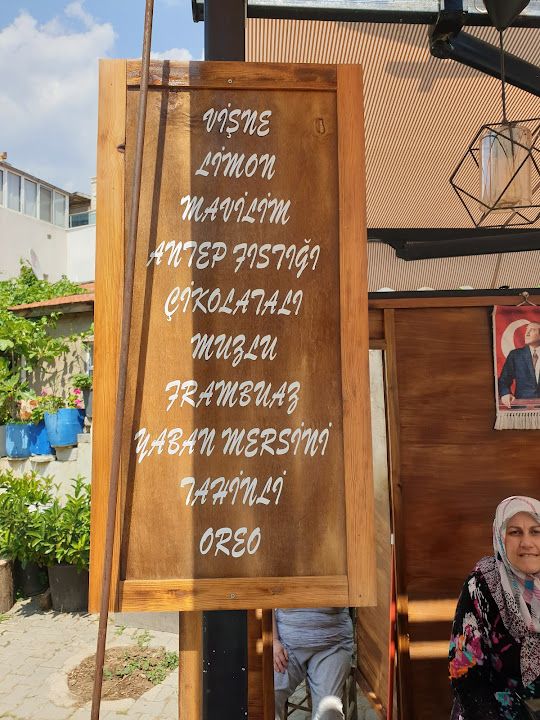 VİŞNE
LİMON
MAVİLİM
ANTEP FISTIĞI
ÇİKOLATALI
MUZLU
FRAMBUAZ
YABAN MERSİNİ
TAHİNLİ
OREO